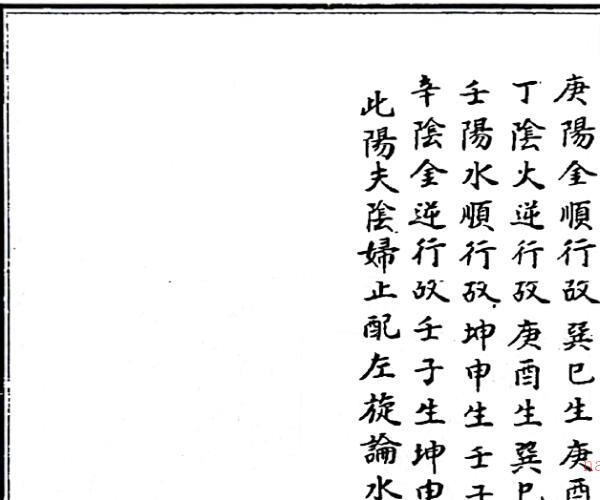 庚陽金順行故巽巳生庚酉
丁陰火逆行故庚酉生巽巳
壬陽水順行故坤申生壬子
辛陰金逆行故壬子生坤申
此陽夫陰婦止配左旋論水